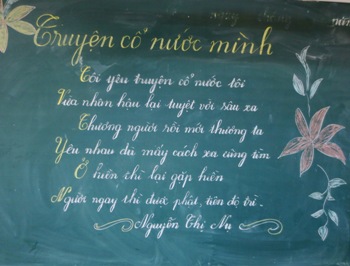 Truyện cổ nước mình
Tôi yêu truyện cổ nước tôi
Vừa nhân hậu lại tuyệt vời sâu xa
Thương người rồi mới thương ta
Yêu nhau dù mấy cách xa cũng tìm
Ở hiền thì lại gặp hiền
Người ngay thì được phật, tiên độ trì.
Nguyễn Thị Mỵ